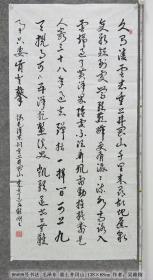 久有凌云志重上井冈山千里来寻故地旧貌
变新颜到处莺歌燕舞更有潺潺流水高路入
云端过了黄洋界险处不须看风雷动旌旗奋是
人寰三十八年过去弹指一挥间可上九
天揽月可下五洋捉鳖谈笑凯歌还世上无
难事只要肯登攀
书法, 毛泽东 重上井冈山, 138×68cm 作者: